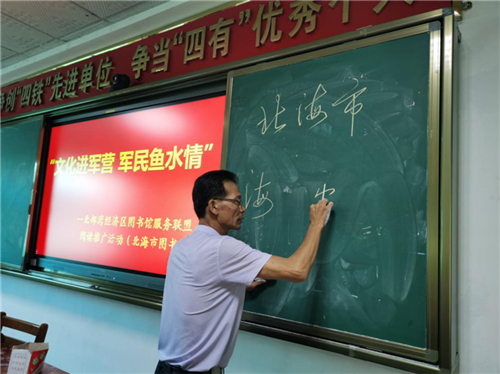 争创“四铁”先进单位、争当“四有”优秀个人
“文化进军营 军民鱼水情”
—北部湾经济区图书馆服务联盟
阅读推广活动（北海市图书
北海市
海